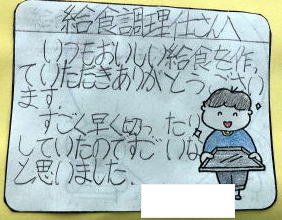 給食調理仕さんへ
いつもおいしい給食を作っ
ていただきありがとうござい
ます。
すごく早く切ったり
していたのですごいな
と思いました。